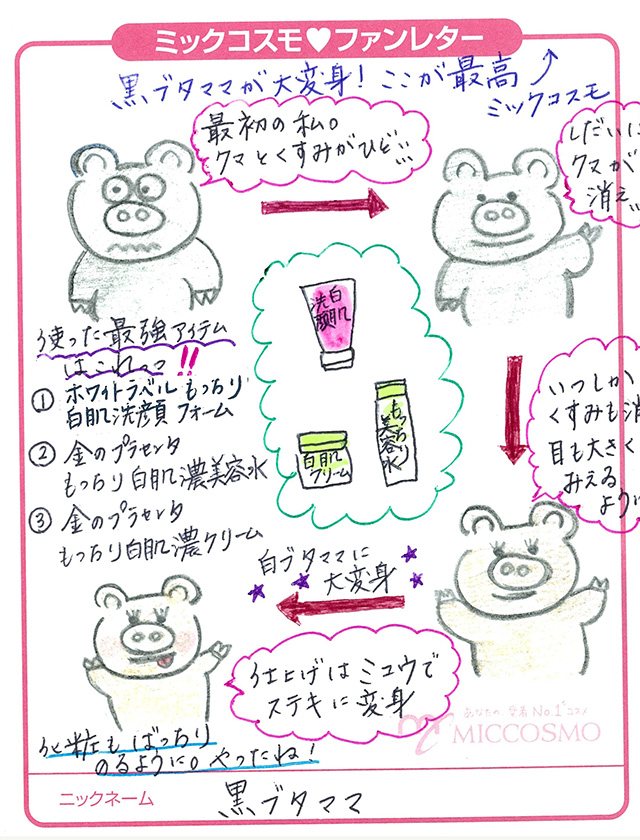 ミックコスモ♥ファンレター
黒ブタママが大変身!ここが最高
ミックコスモ
最初の私。
クマとくすみがひど…
しだいに
クマが
消え…
使った最強アイテム
はこれっっ!!
① ホワイトラベル もっちり
白肌洗顔フォーム
② 金のプラセンタ
もっちり白肌濃美容水
③ 金のプラセンタ
もっちり白肌濃クリーム
白肌
洗顔
もっちり
美容水
白肌
クリーム
いつしか
くすみも消
目も大きく
みえる
ように
白ブタママに
大変身
仕上げはミュウで
ステキに変身
化粧もばっちり
のるように。やったね!
あなたの 愛着 No.1コスメ
MICCOSMO
ニックネーム 黒ブタママ